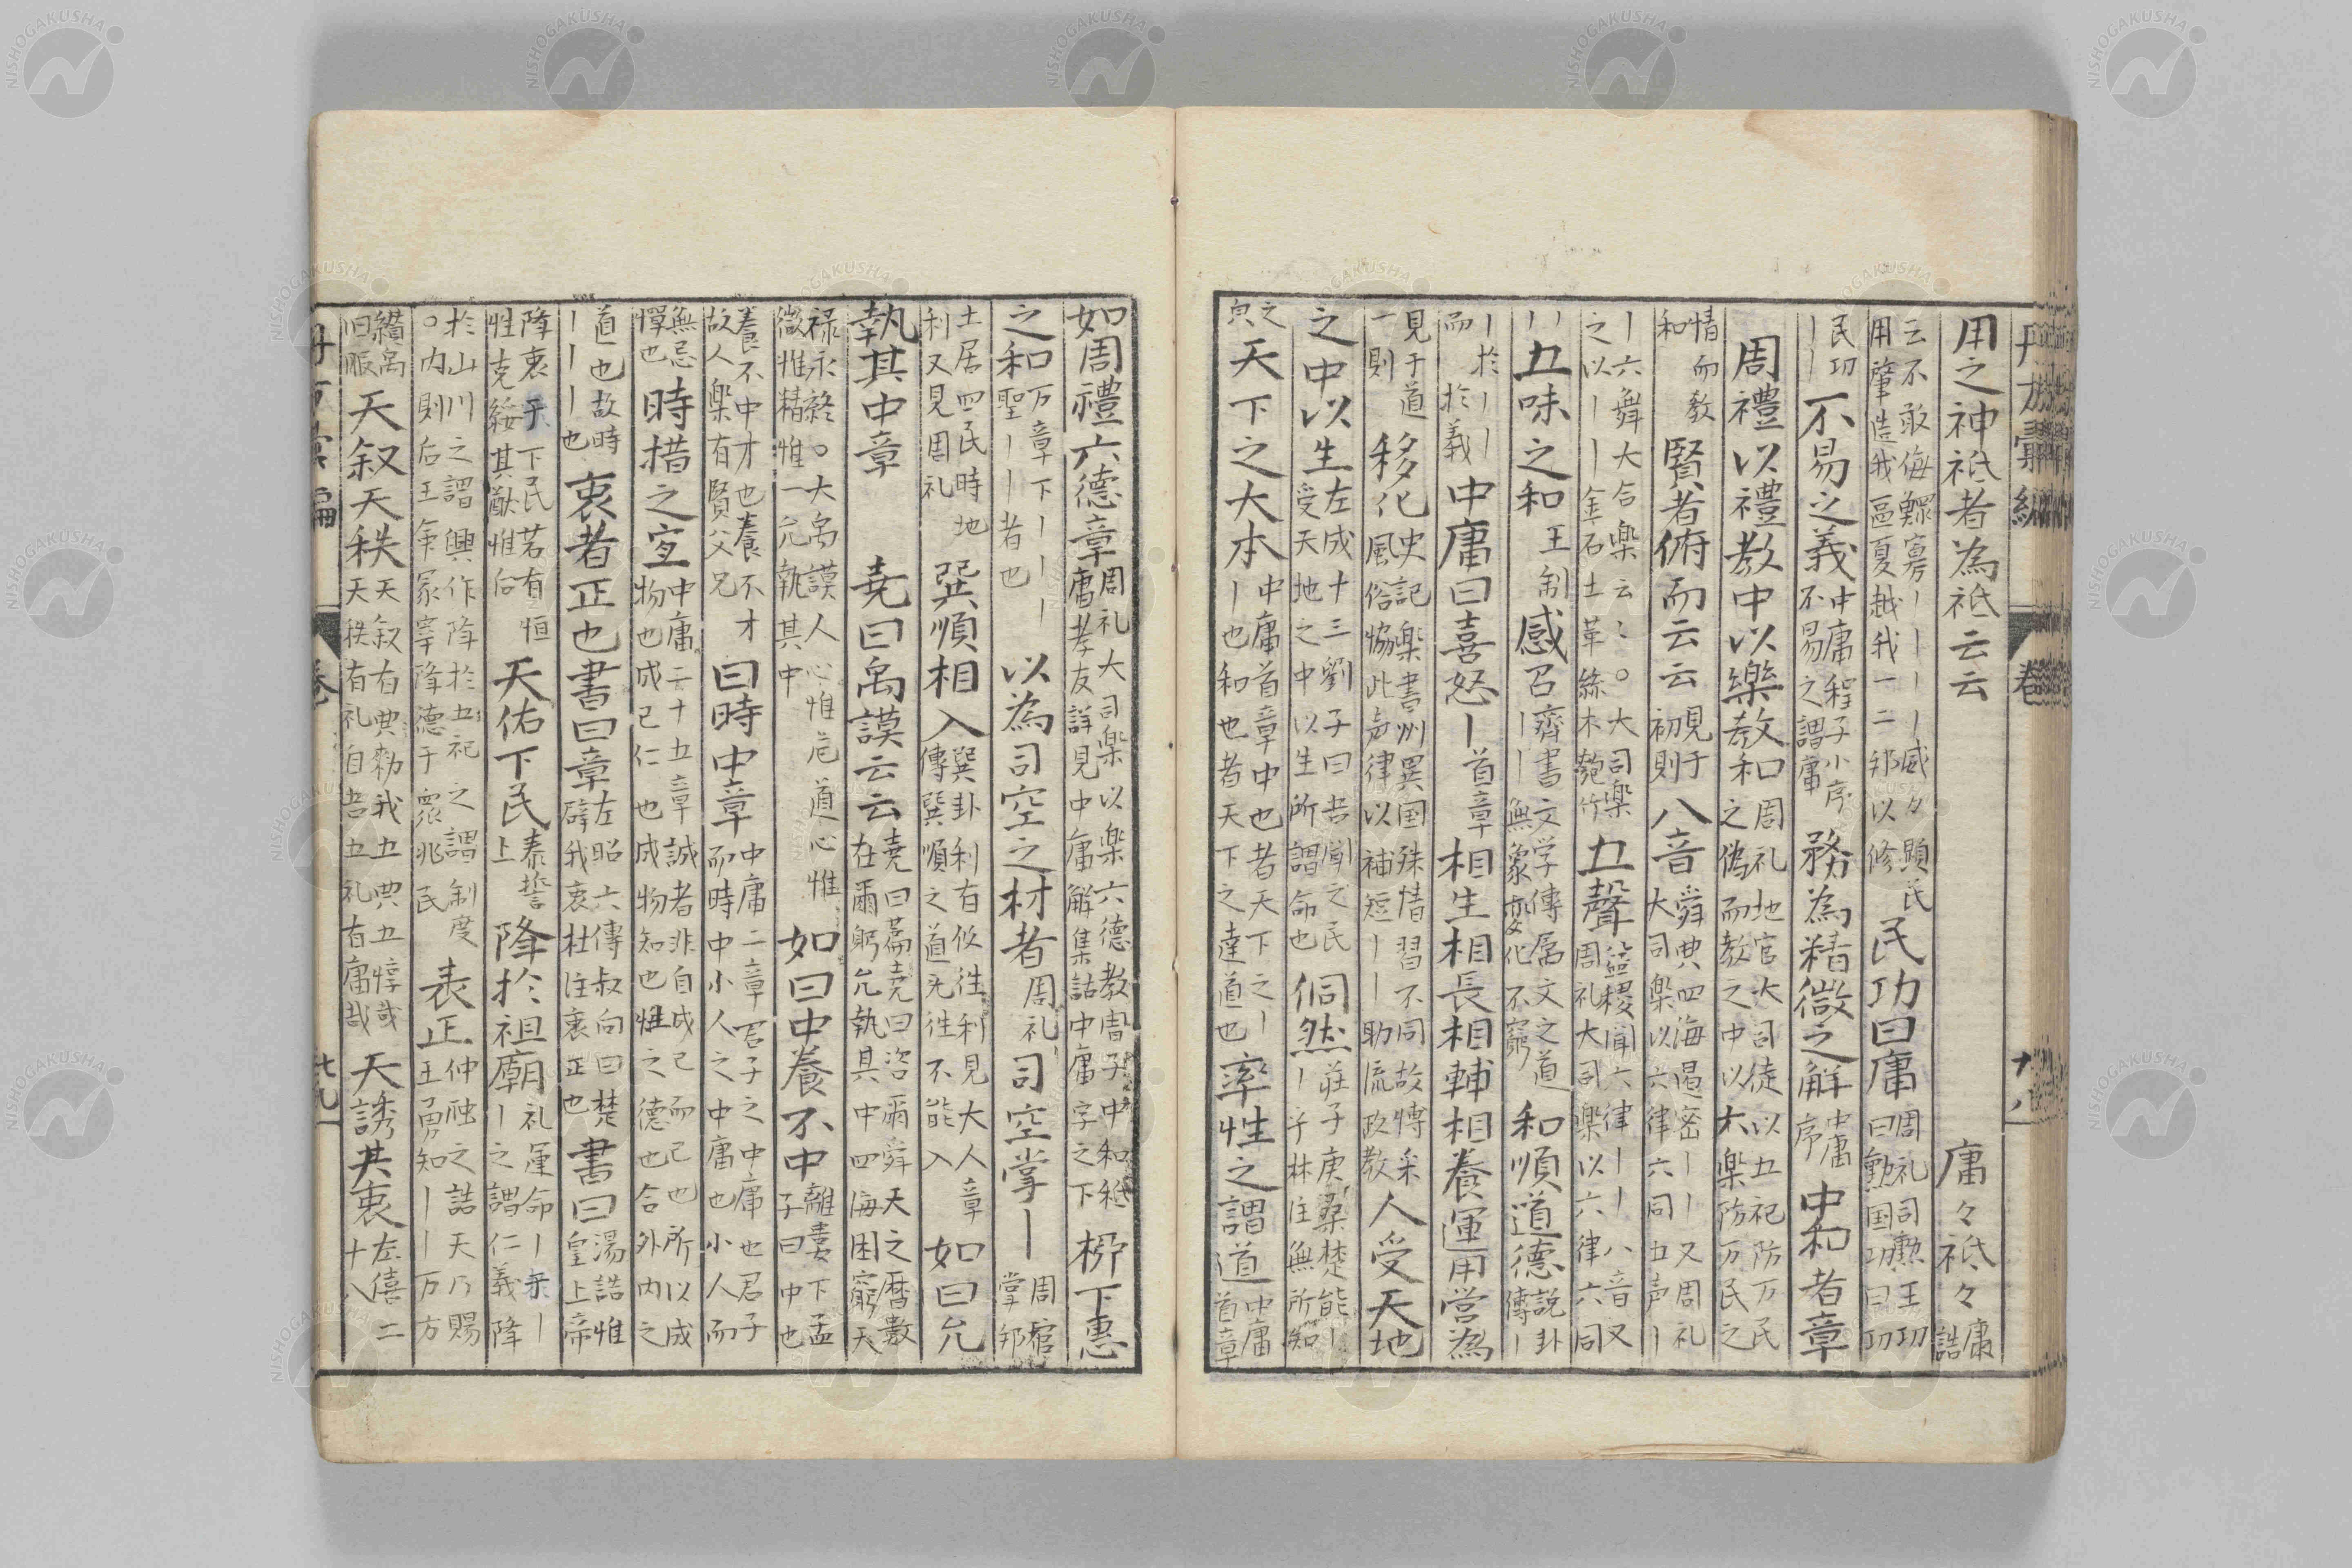 用之神祇者為祇云云 庸々祇々康誥
云不敢侮鰥寡丨丨丨丨威々顯民
用肇造我區夏越我一二邦以修 民功曰庸周礼司勲王功曰勲国功曰功
民功丨丨 不易之義中庸程子小序不易之謂庸 務為精微之解中庸序 中和者章
周禮以禮教中以樂教和周礼地官大司徒以五祀防万民之偽而教之中以六楽防万民之
情而教和 賢者俯而云云見于初則 八音舜典四海遏密丨丨又周礼大司楽以六律六同五声丨
丨六舞大合楽云々○大司楽之以丨丨金石土革絲木匏竹 五聲 周礼大司楽以六律六同
丨丨五味之和王制 感召齊書文学傳属文之道無象変化不窮 和順道德説卦傳丨
丨於丨丨而於義 中庸曰喜怒丨首章 相生相長相輔相養運用営為
見于道一則 移化史記楽書州異国殊情習不同故博采風俗協此声律以補短丨丨助流政教 人受天地
之中以生左成十三劉子曰吾聞之民受天地之中以生所謂命也 侗然丨荘子庚桑楚能丨丨乎林注無所知
之皃 天下之大本中庸首章中也者天下之丨丨也和也者天下之達道也 率性之謂道中庸首章
丹 彙編
卷
如周禮六德章周礼大司楽以楽六德教冑子中和祗庸孝友詳見中庸解集詁中庸字之下 柳下惠
之和万章下丨丨丨聖丨丨者也 以為司空之材者周礼 司空掌丨周官掌邦
土居四民時地利又見周礼 巽順相入巽卦利有攸往利見大人章傳巽順之道无往不能入 如曰允
執其中章 堯曰禹謨云云堯曰篇堯曰咨爾舜天之暦數在爾躬允執其中四海困窮天
禄永終○大禹謨人心惟危道心惟微惟精惟一允執其中 如曰中養不中離婁下孟子曰中也
養不中才也養不才故人楽有賢父兄 曰時中章中庸二章君子之中庸也君子而時中小人之中庸也小人而
無忌憚也 時措之宜中庸二十五章誠者非自成己而已也所以成物也成己仁也成物知也性之德也合外内之
道也故時丨丨丨也 衷者正也書曰章左昭六傳叔向曰楚辟我衷杜注衷正也 書曰湯誥惟皇上帝
降衷于下民若有恒性克綏其猷惟后 天佑下民泰誓上 降於祖廟礼運命丨于丨丨之謂仁義降
於山川之謂興作降於五祀之謂制度○内則后王命冢宰降德于衆兆民 表正仲虺之誥天乃賜王勇知丨丨万方
纉禹旧服 天叙天秩天叙有典勅我五典五惇哉天秩有礼自吾五礼有庸哉 天誘其衷左僖二十八